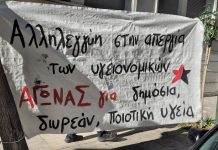 Αλληλεγγύη στην απεργία
των υγειονομικών
ΑΓΩΝΑΣ για δημόσια,
δωρεάν, ποιοτική υγεία